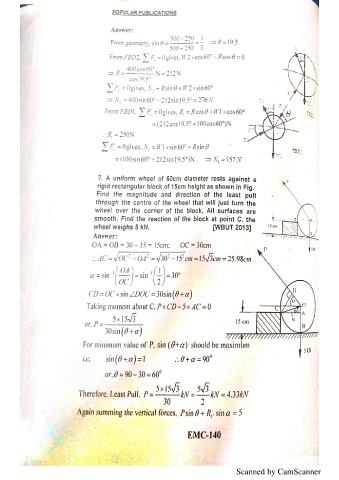 POPULAR PUBLICATIONS
Answer:
From geometry, sin θ = (500 − 250)/(500 + 250) = 1/3 ⇒ θ = 19.5
From FBD2, ∑ F = 0 gives, W2 × cos60° − R cos θ = 0
⇒ R = 400cos60°/cos19.5° N = 212N
∑ F = 0 gives, N = R sin θ = W2 × sin60°
⇒ N = 400sin60° − 212sin19.5° = 276 N
From FBD1, ∑ F = 0 gives, R = R cos θ + W1 × cos60°
= (212cos19.5° + 100cos60°)N
∴ R = 250N
∑ F = 0 gives, N = W1 × sin60° − R sin θ
= (100sin60° + 212sin19.5°)N ⇒ N = 157 N
7. A uniform wheel of 60cm diameter rests against a
rigid rectangular block of 15cm height as shown in Fig.
Find the magnitude and direction of the least pull
through the centre of the wheel that will just turn the
wheel over the corner of the block. All surfaces are
smooth. Find the reaction of the block at point C. the
wheel weighs 5 kN. [WBUT 2013]
Answer:
OA = OB = 30 − 15 = 15cm; OC = 30cm
∴ AC = √(OC² − OA²) = √(30² − 15²) cm = 15√3 cm = 25.98cm
α = sin⁻¹(OA/OC) = sin⁻¹(1/2) = 30°
CD = OC × sin∠DOC = 30sin(θ + α)
Taking moment about C, P × CD − 5 × AC = 0
or, P = 5 × 15√3 / 30sin(θ + α)
For minimum value of P, sin (θ+α) should be maximum
i.e. sin(θ + α) = 1 ∴ θ + α = 90°
or, θ = 90 − 30 = 60°
Therefore, Least Pull, P = 5 × 15√3/30 kN = 5√3/2 kN = 4.33kN
Again summing the vertical forces, P sin θ + R · sin α = 5
15 cm
P
C
O
A
B
5 kN
EMC-140
Scanned by CamScanner